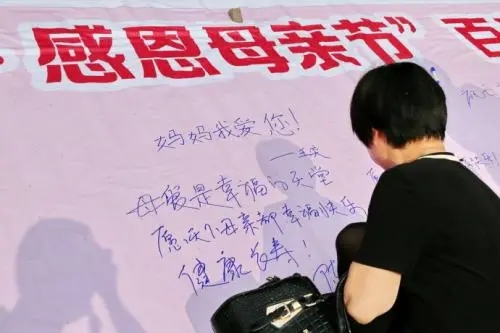 感恩母亲节” 百
妈妈我爱您!
母爱是幸福的天堂
愿天下母亲都幸福快乐
健康长寿!